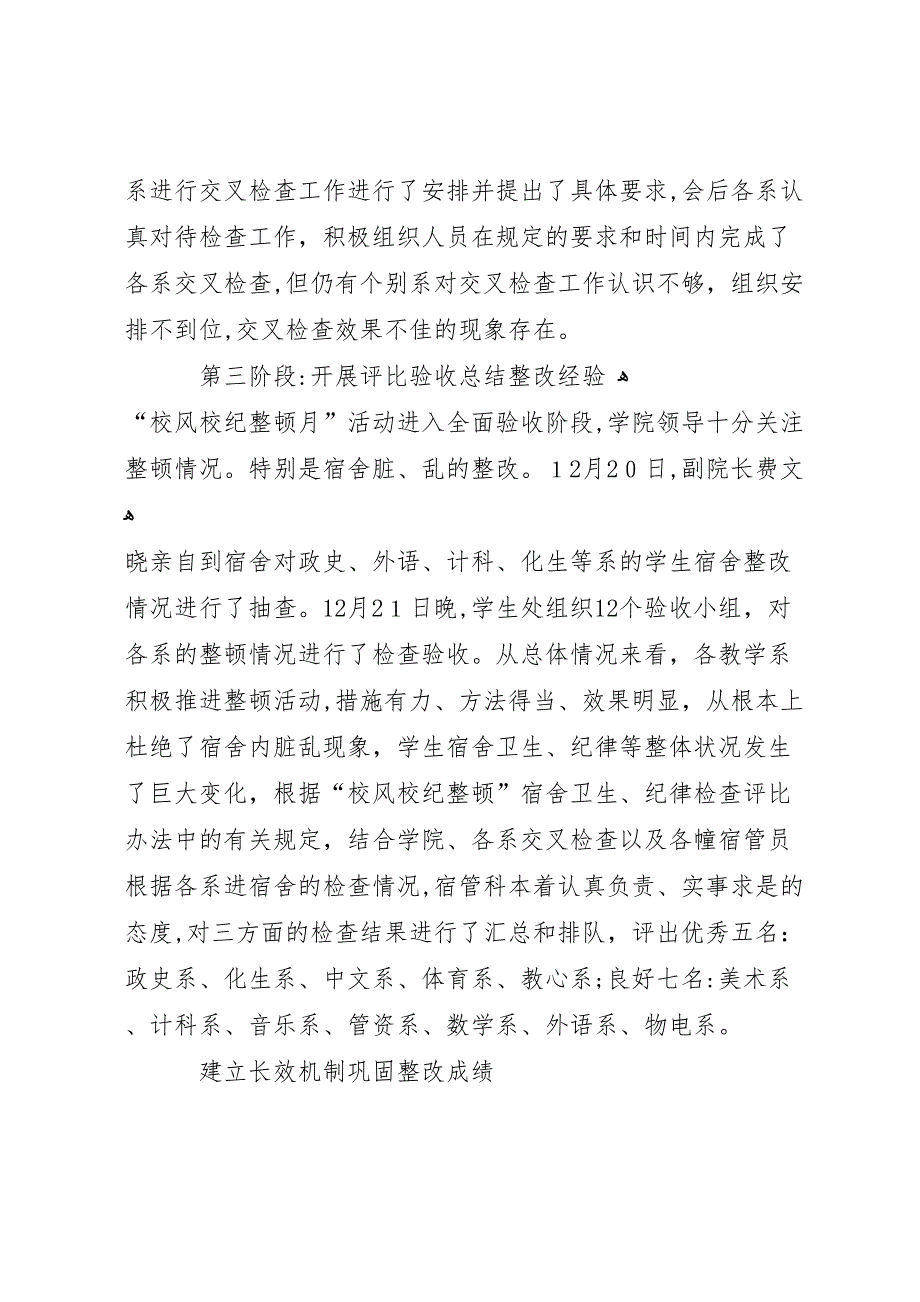 系进行交叉检查工作进行了安排并提出了具体要求,会后各系认
真对待检查工作，积极组织人员在规定的要求和时间内完成了
各系交叉检查,但仍有个别系对交叉检查工作认识不够，组织安
排不到位,交叉检查效果不佳的现象存在。
第三阶段:开展评比验收总结整改经验 ﻫ
“校风校纪整顿月”活动进入全面验收阶段,学院领导十分关注
整顿情况。特别是宿舍脏、乱的整改。１2月２０日,副院长费文
ﻫ
晓亲自到宿舍对政史、外语、计科、化生等系的学生宿舍整改
情况进行了抽查。12月2１日晚,学生处组织12个验收小组，对
各系的整顿情况进行了检查验收。从总体情况来看，各教学系
积极推进整顿活动,措施有力、方法得当、效果明显，从根本上
杜绝了宿舍内脏乱现象，学生宿舍卫生、纪律等整体状况发生
了巨大变化，根据“校风校纪整顿”宿舍卫生、纪律检查评比
办法中的有关规定，结合学院、各系交叉检查以及各幢宿管员
根据各系进宿舍的检查情况,宿管科本着认真负责、实事求是的
态度,对三方面的检查结果进行了汇总和排队，评出优秀五名：
政史系、化生系、中文系、体育系、教心系;良好七名:美术系
、计科系、音乐系、管资系、数学系、外语系、物电系。
建立长效机制巩固整改成绩